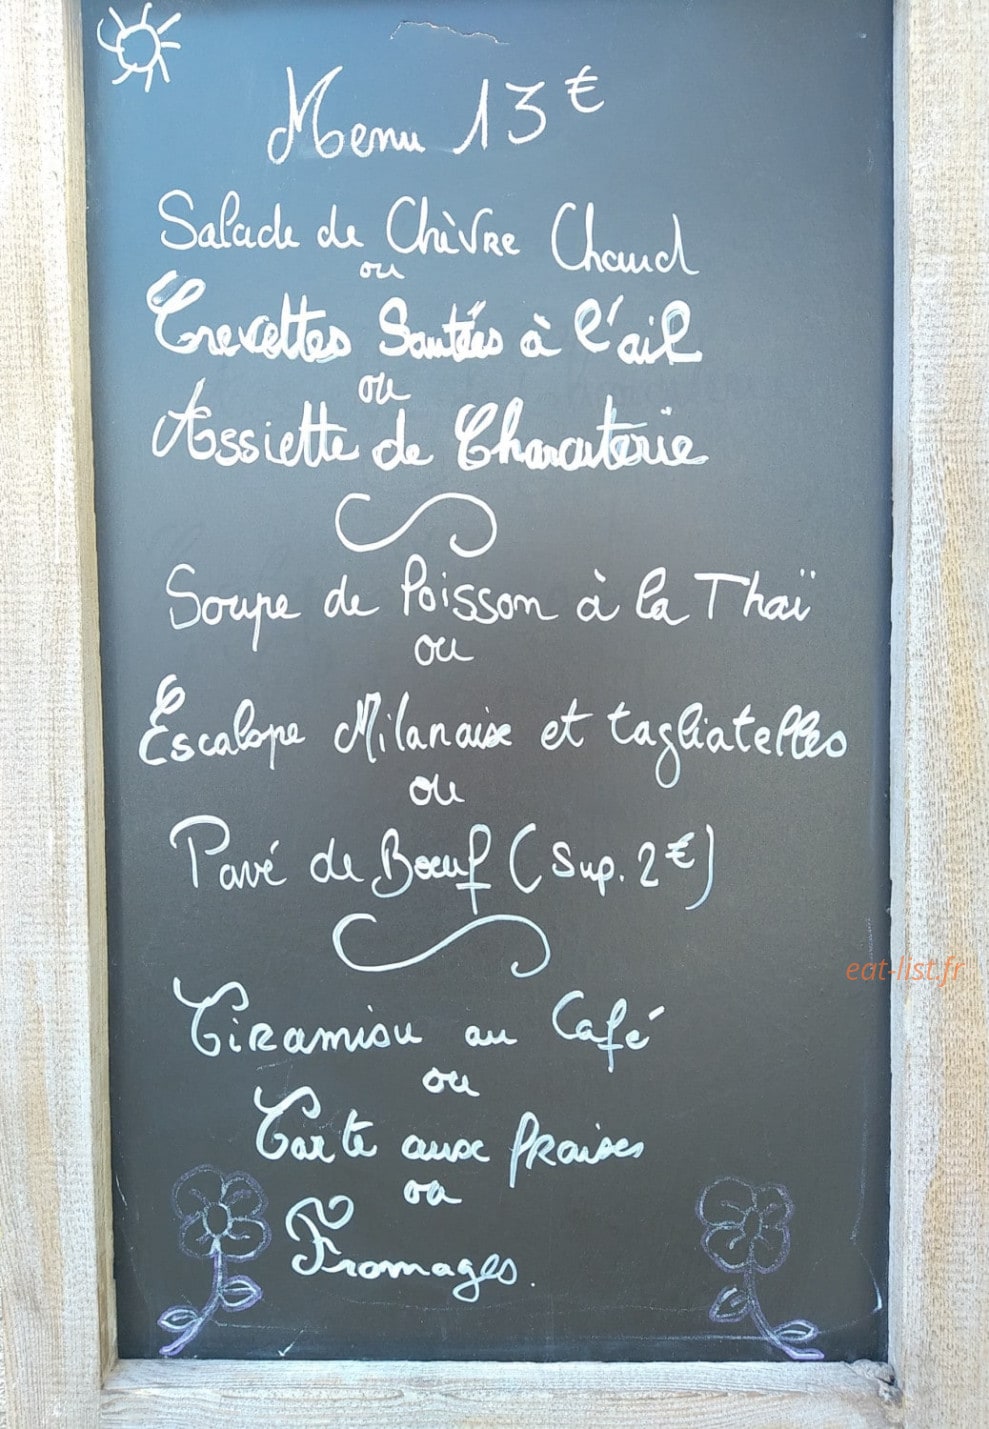 Menu 13€
Salade de Chèvre Chaud
ou
Crevettes Sautées à l'ail
ou
Assiette de Charcuterie
Soupe de Poisson à la Thaï
ou
Escalope Milanaise et tagliatelles
ou
Pavé de Boeuf (Sup. 2€)
eat-list.fr
Tiramisu au Café
ou
Tarte aux fraises
ou
Fromages.